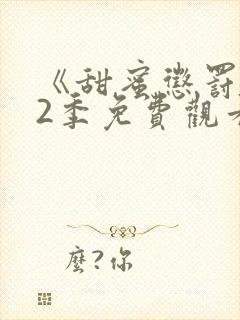 《甜蜜懲罰
2季免費觀看
麼?你